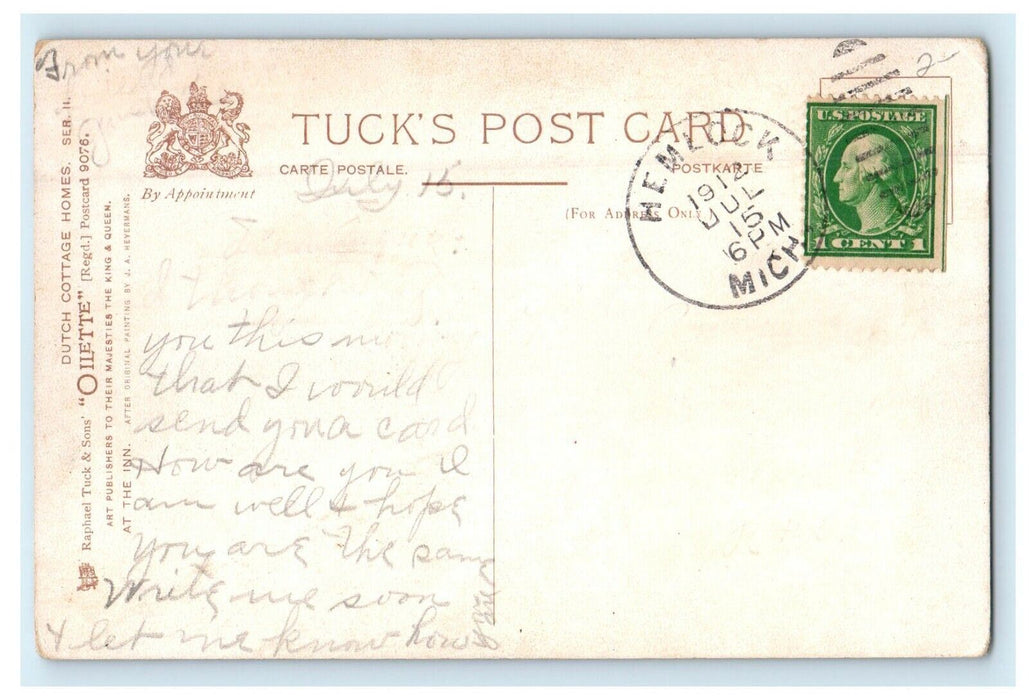 From your
TUCK'S POST CARD
CARTE POSTALE.
POSTKARTE
(FOR ADDRESS ONLY)
By Appointment
DUTCH COTTAGE HOMES. SER. II.
Raphael Tuck & Sons' "OILETTE" [Regd.] Postcard 9076.
ART PUBLISHERS TO THEIR MAJESTIES THE KING & QUEEN.
AT THE INN. AFTER ORIGINAL PAINTING BY J. A. HEYERMANS.
HEMLOCK
1912
JUL
15
6 PM
MICH
U.S. POSTAGE
1 CENT 1
2-
July 15.
I thought
you this
that I would
send you a card
How are you I
am well & hope
you are the same
Write me soon
& let me know how
you are